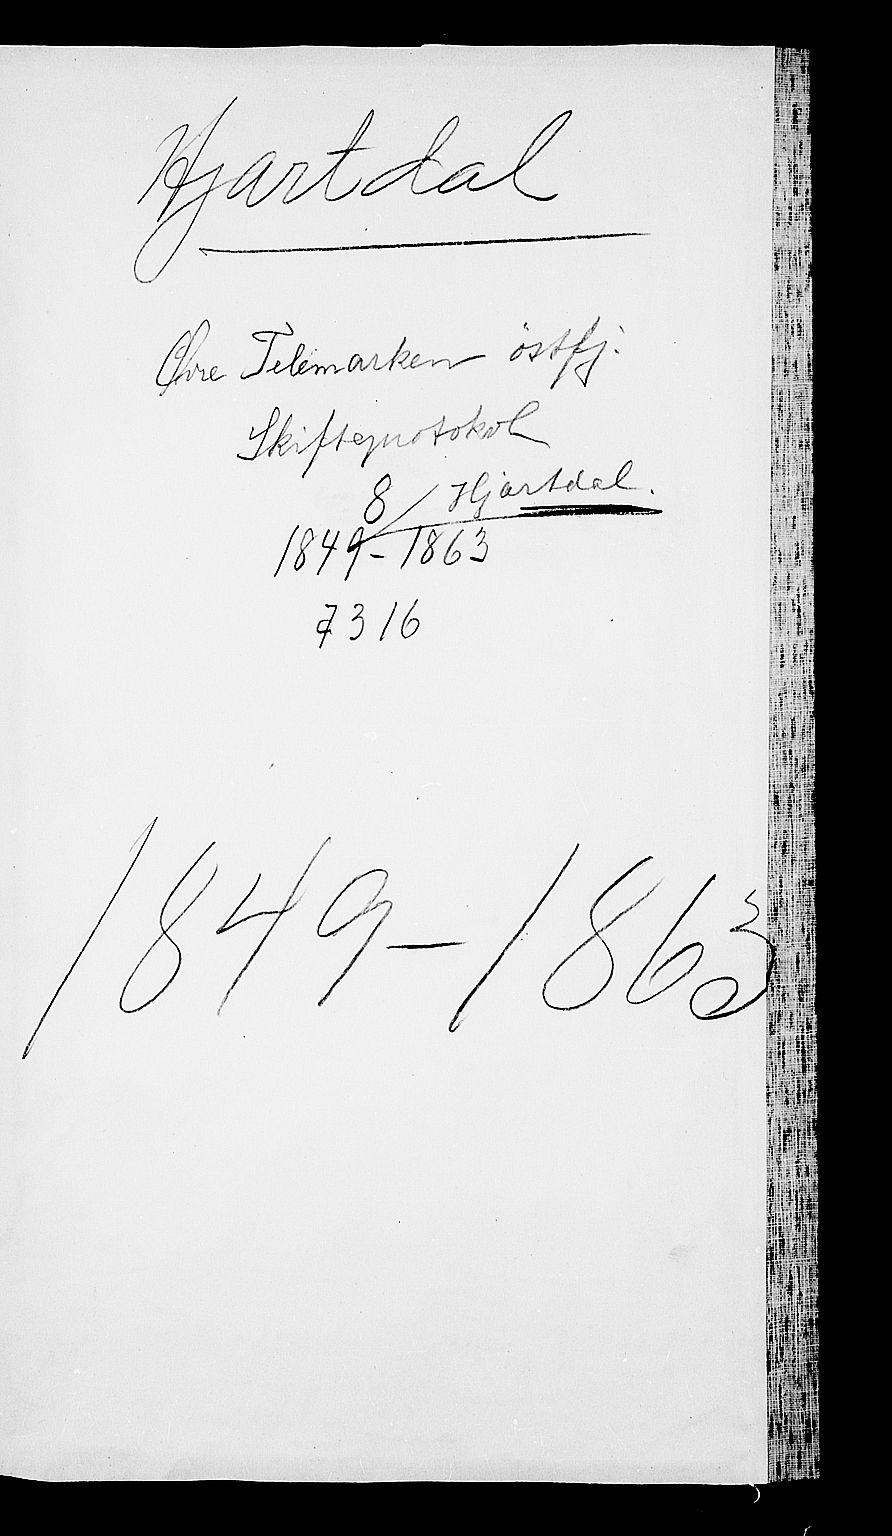 Hjartdal
Øvre Telemarken östfj.
Skifteprotokol
8 / Hjartdal.
1849-1863
7316
1849-1863